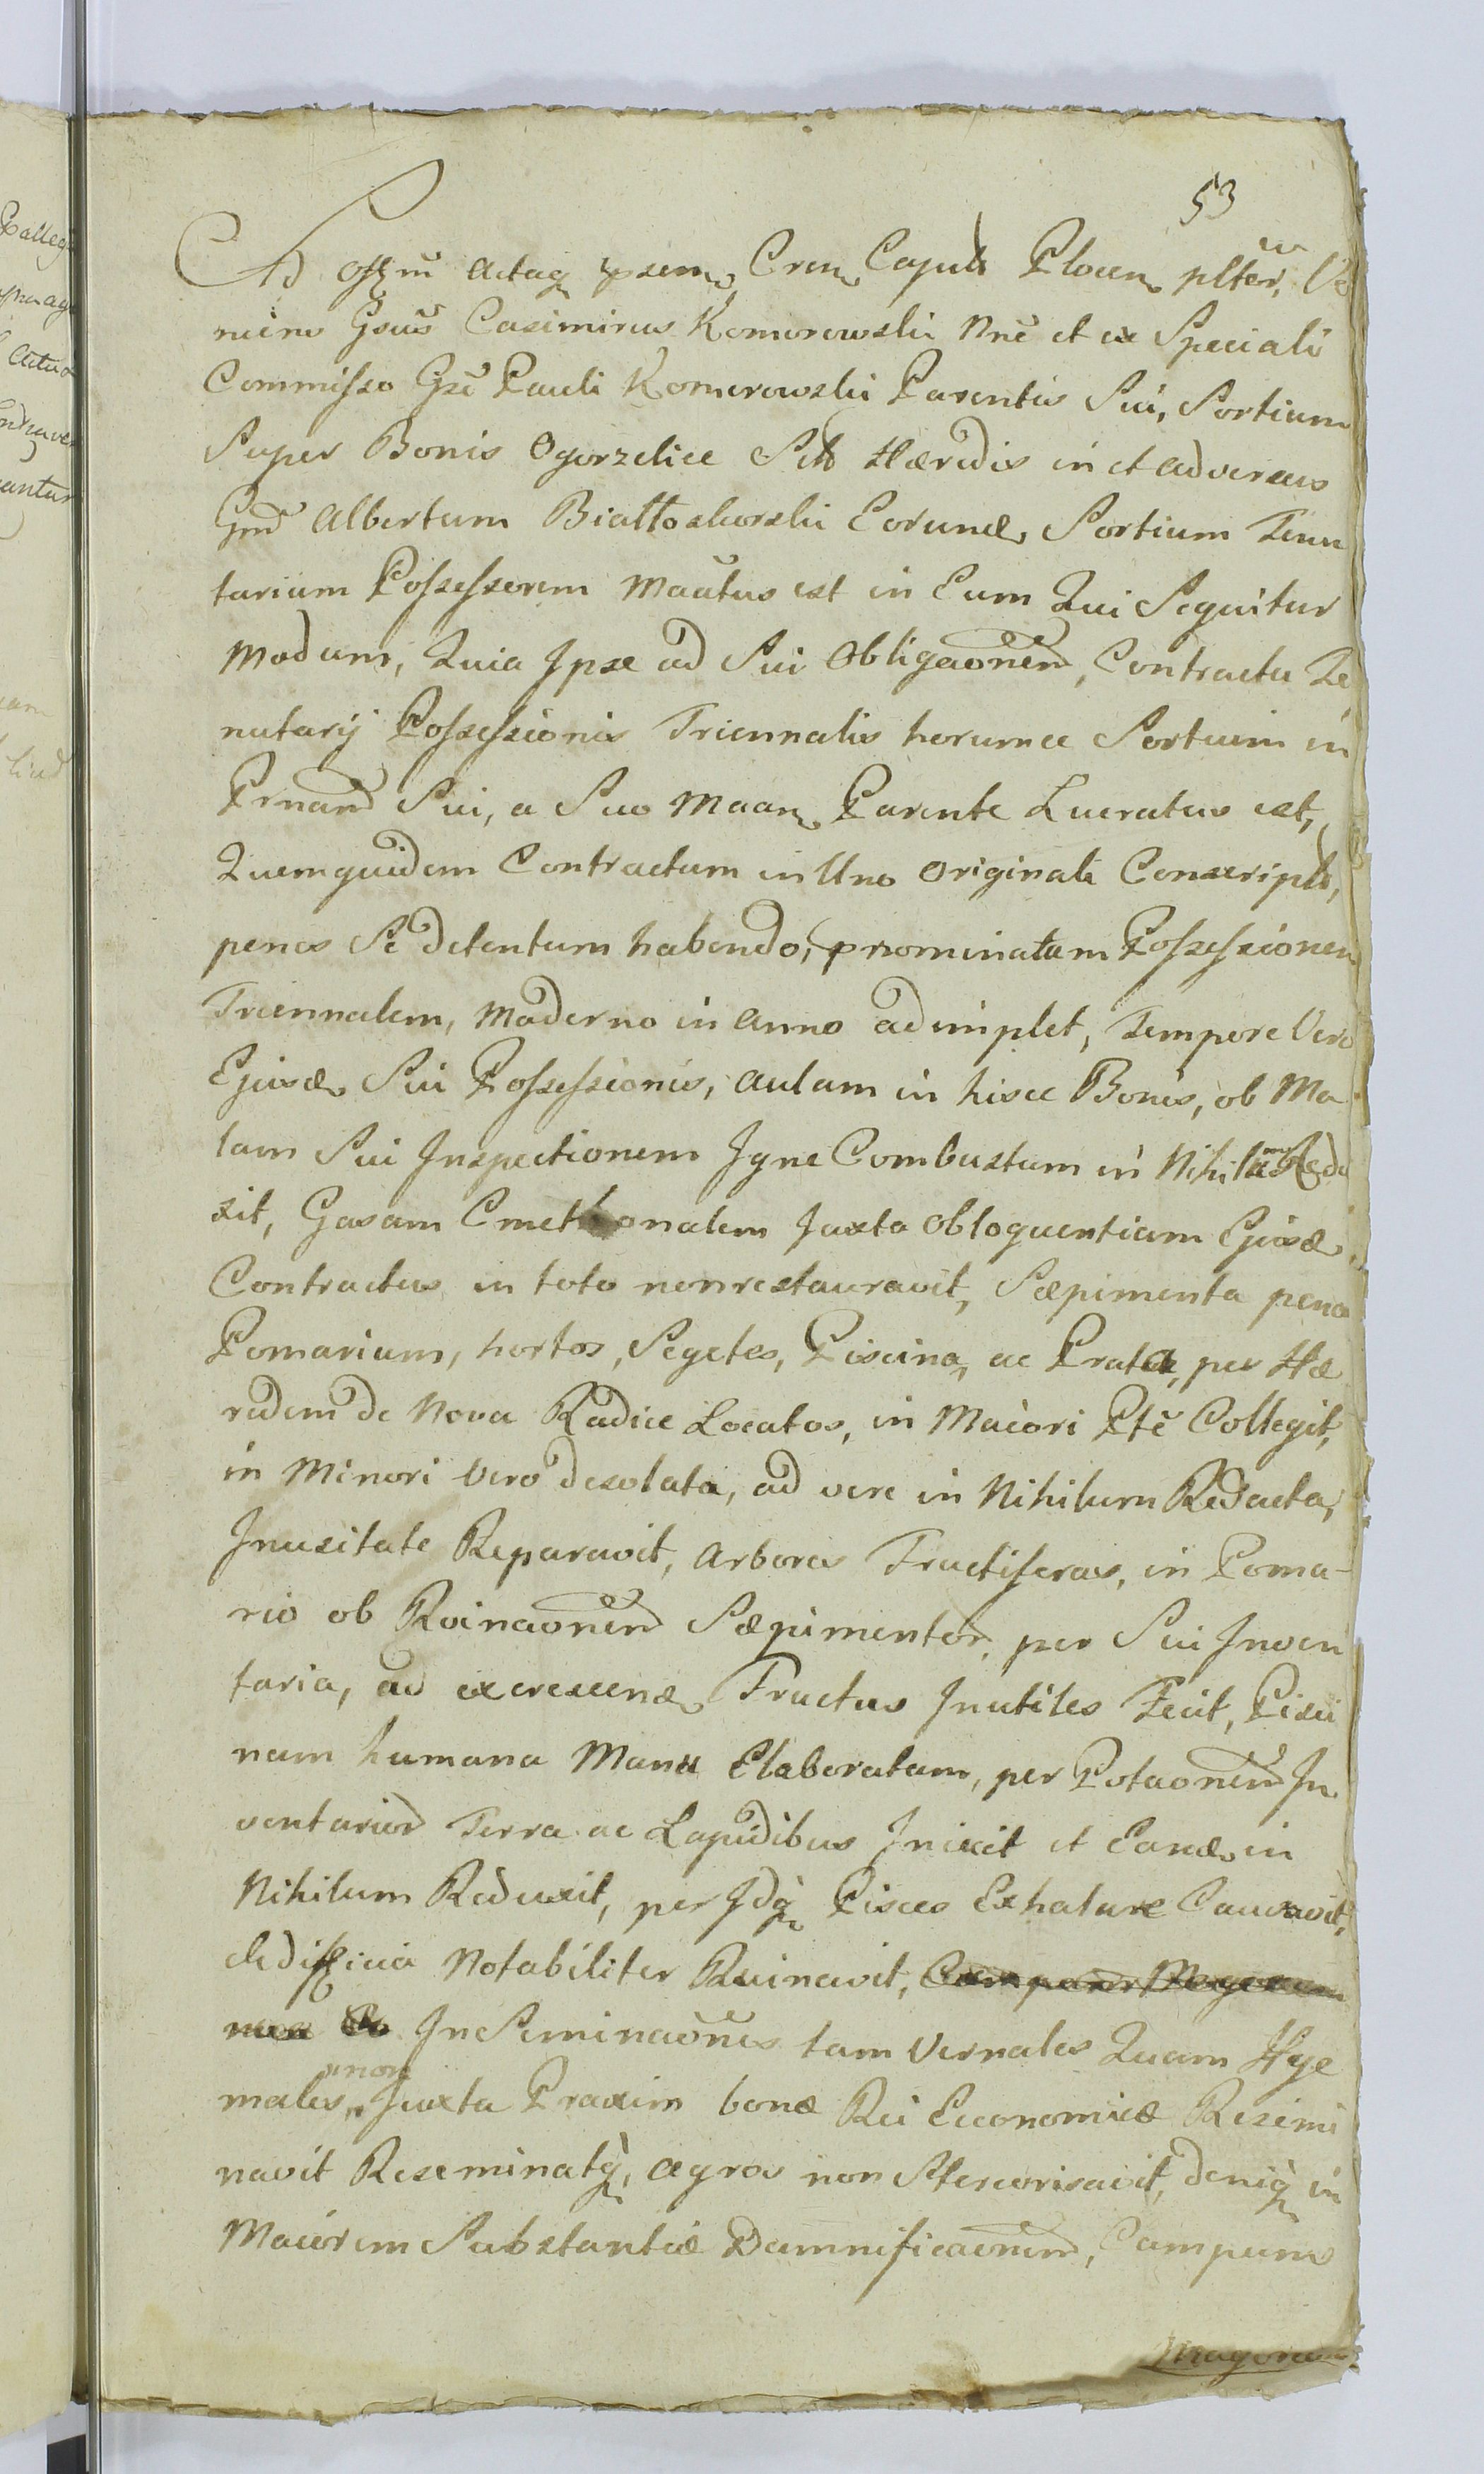 53
Ad Offm Actaq psem Cren Capts Plocen pltēr Ve
niens Gsus Casimirus Komorowski Nne et ex Speciali
Commisso Gsi Pauli Komorowski Parentis Sui, Sortium
Super Bonis Ogorzelice Sitt Hæredis in et adversus
Gnd Albertum Białłoskorski Eorundæ Sortium Tenu
tarium Possessorem Maãtus est in Eum Qui Sequitur
Modum, Quia Ipse ad Sui Obligaonem, Contractu Te
nutarij Possessionis Triennalis horumce Sortium in
Prnam Sui, a Suo Maan Parente Lucratus est,
Quemquidem Contractum in Uno Originali Conscript,
penes Se detentum habendo, prnominatam Possessionem
Triennalem, Moderno in Anno adimplet, Tempore Vero
Ejusdæ Sui Possessionis, Aulam in hisce Bonis, ob Ma
lam Sui Inspectionem Igne Combustum in Nihilum Redu
xit, Gasam Cmethonalem Juxta Obloquentiam Ejusdæ
Contractus in toto nonrestauravit, Sæpimenta penes
Pomarium, hortos, Segetes, Piscina, ac Prata, per Hæ
redem de Nova Radice Locatos, in Maiori Ptē Collegit,
in Minori Vero desolata, ad vere in Nihilum Redacta,
Inusitate Reparavit, Arbores Fructiferas, in Poma-
rio ob Ruinaonem Sæpimentor, per Sui Inven
taria, ad excrescenæ Fructus Inutiles Fecit, Pisci
nam humana Manu Elaboratam, per Potaonem In
ventarior Terra ac Lapidibus Iniecit et Eandæ in
Nihilum Reduxit, per Idq Pisces Exhalare Causavit,
Ædificia Notabiliter Ruinavit,
In Seminaōnes tam Vernales Quam Hye
males, non Juxta Praxim bonæ Rei Economicæ Resemi
navit Reseminatq, Agros non Stercorisavit, deniq in
Maiorem Substantiæ Damnificaonem, Campum
Magorum